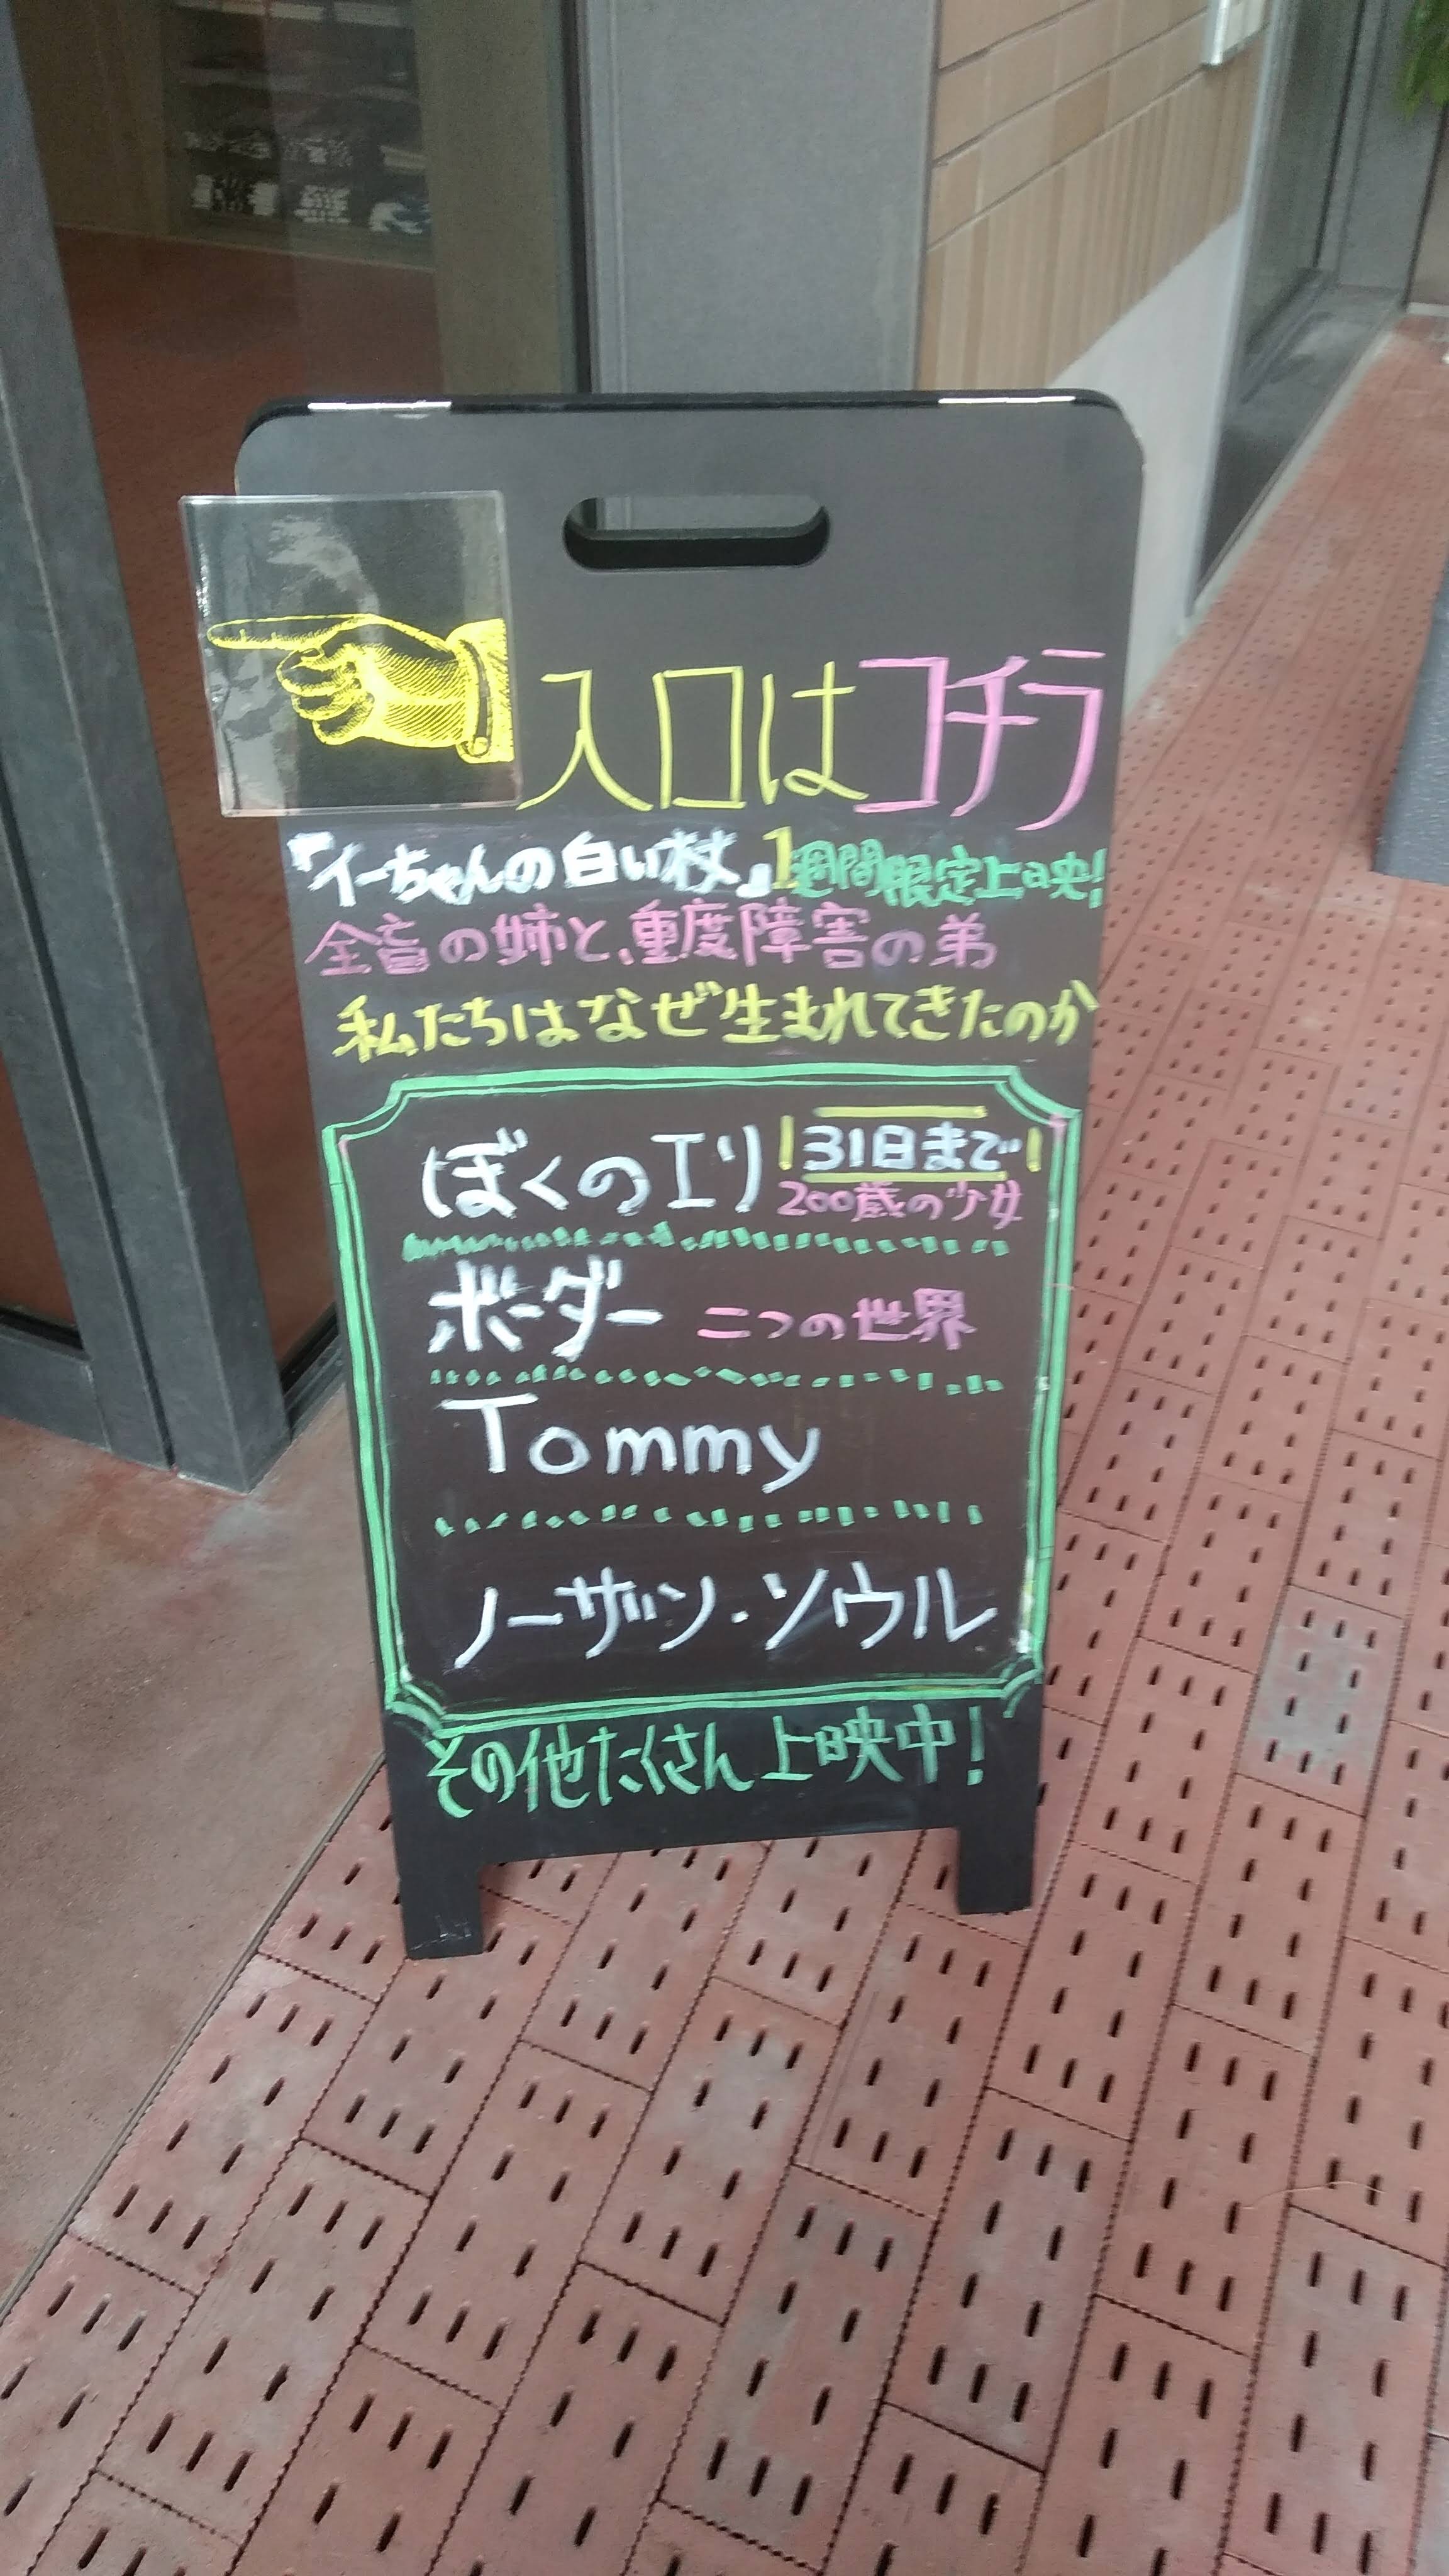 入口はコチラ
『イーちゃんの白い杖』1週間限定上映!
全盲の姉と、重度障害の弟
私たちはなぜ生まれてきたのか
ぼくのエリ 31日まで
200歳の少女
ボーダー 二つの世界
Tommy
ノーザン・ソウル
その他たくさん上映中!